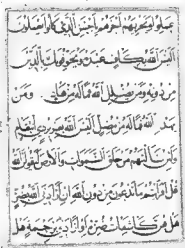 عملوا ويجزيهم اجرهم باحسن الذي كانوا يعملون
اليس الله بكاف عبده ويخوفونك بالذين
من دونه ومن يضلل الله فما له من هاد ومن
يهد الله فما له من مضل اليس الله بعزيز ذي انتقام
ولئن سالتهم من خلق السموات والارض ليقولن الله
قل افرايتم ما تدعون من دون الله ان ارادني الله بضر
هل هن كاشفات ضره او ارادني برحمة هل